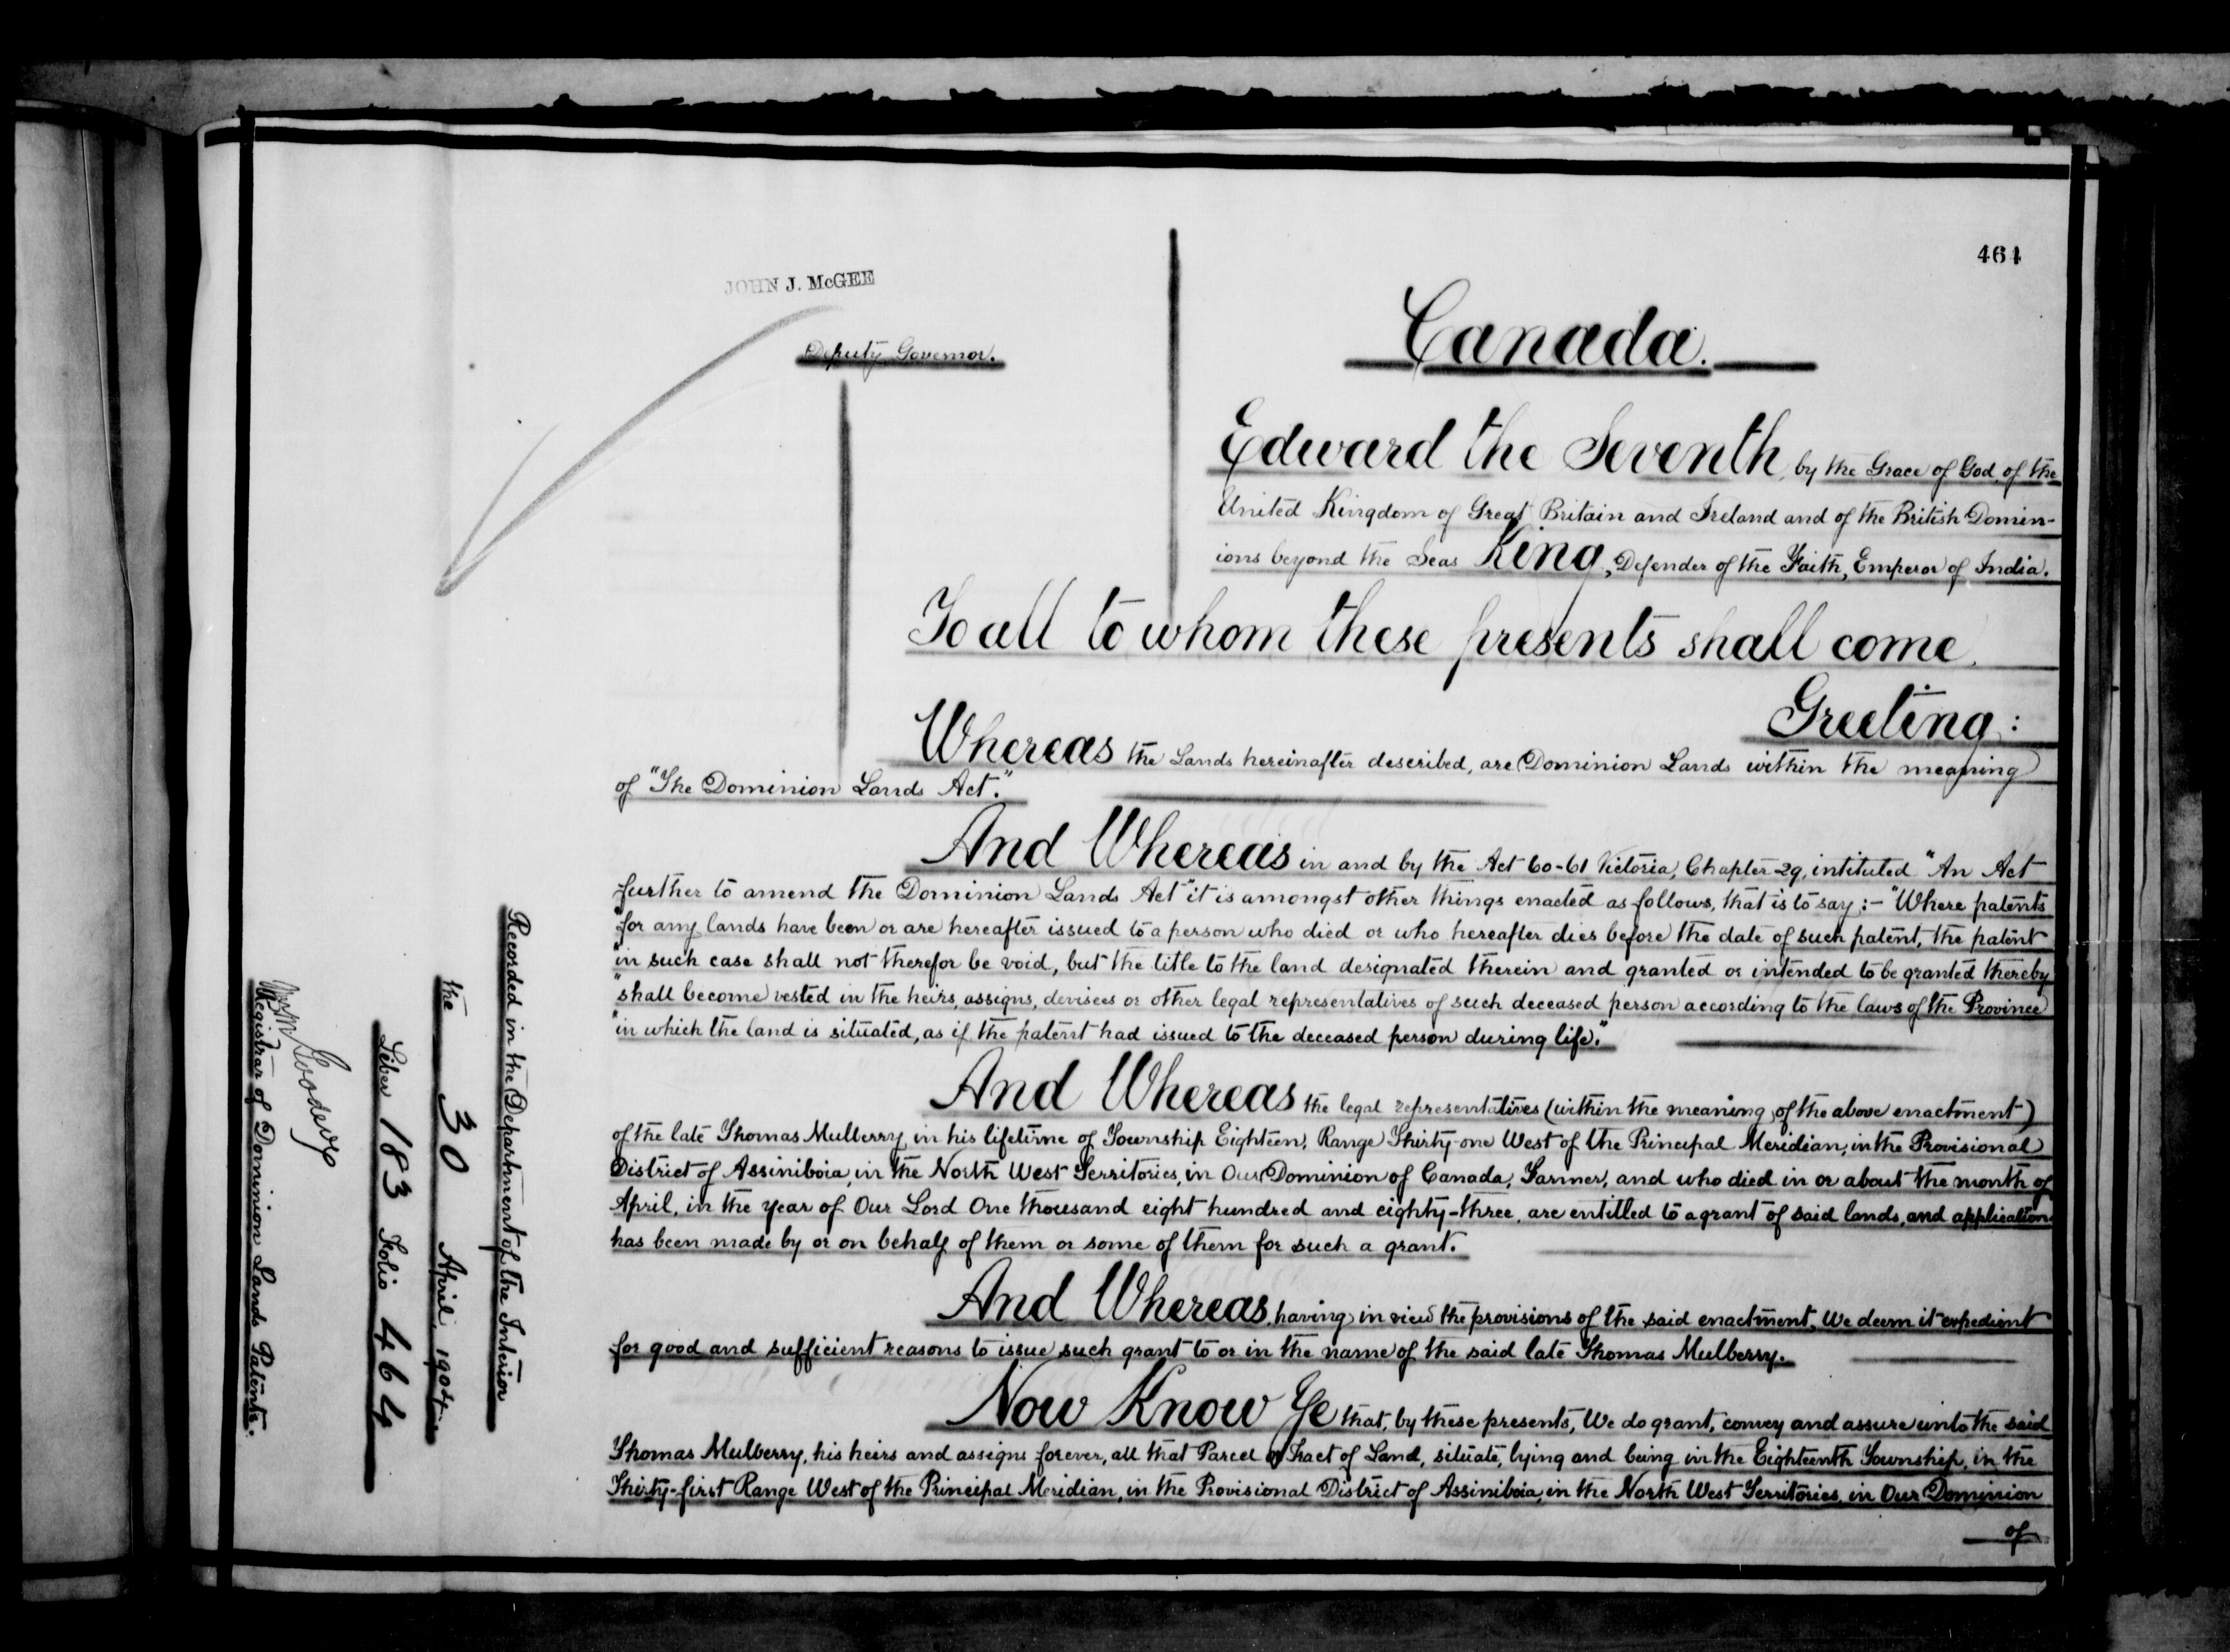 464
JOHN J. McGEE
Deputy Governor.
Canada.
Edward the Seventh, by the Grace of God, of the
United Kingdom of Great Britain and Ireland and of the British Domin-
ions beyond the Seas King, Defender of the Faith, Emperor of India.
To all to whom these presents shall come,
Greeting:
Whereas the Lands hereinafter described, are Dominion Lands within the meaning
of "The Dominion Lands Act."
And Whereas in and by the Act 60-61 Victoria, Chapter 29, intituled "An Act
further to amend the Dominion Lands Act" it is amongst other things enacted as follows, that is to say:- "Where patents
"for any lands have been or are hereafter issued to a person who died or who hereafter dies before the date of such patent, the patent
"in such case shall not therefor be void, but the title to the land designated therein and granted or intended to be granted thereby
"shall become vested in the heirs, assigns, devisees or other legal representatives of such deceased person according to the laws of the Province
"in which the land is situated, as if the patent had issued to the deceased person during life."
And Whereas the legal representatives (within the meaning of the above enactment)
of the late Thomas Mulberry, in his lifetime of Township Eighteen, Range Thirty-one West of the Principal Meridian, in the Provisional
District of Assiniboia, in the North West Territories, in Our Dominion of Canada, Farmer, and who died in or about the month of
April, in the year of Our Lord One thousand eight hundred and eighty-three, are entitled to a grant of said lands, and application
has been made by or on behalf of them or some of them for such a grant.
And Whereas, having in view the provisions of the said enactment, We deem it expedient
for good and sufficient reasons to issue such grant to or in the name of the said late Thomas Mulberry.
Now Know Ye that, by these presents, We do grant, convey and assure unto the said
Thomas Mulberry, his heirs and assigns forever, all that Parcel or Tract of Land, situate, lying and being in the Eighteenth Township, in the
Thirty-first Range West of the Principal Meridian, in the Provisional District of Assiniboia, in the North West Territories, in Our Dominion
of
Recorded in the Department of the Interior
the 30 April, 1904
Liber 183 Folio 464
Wm Goodeve
Registrar of Dominion Lands Patents.